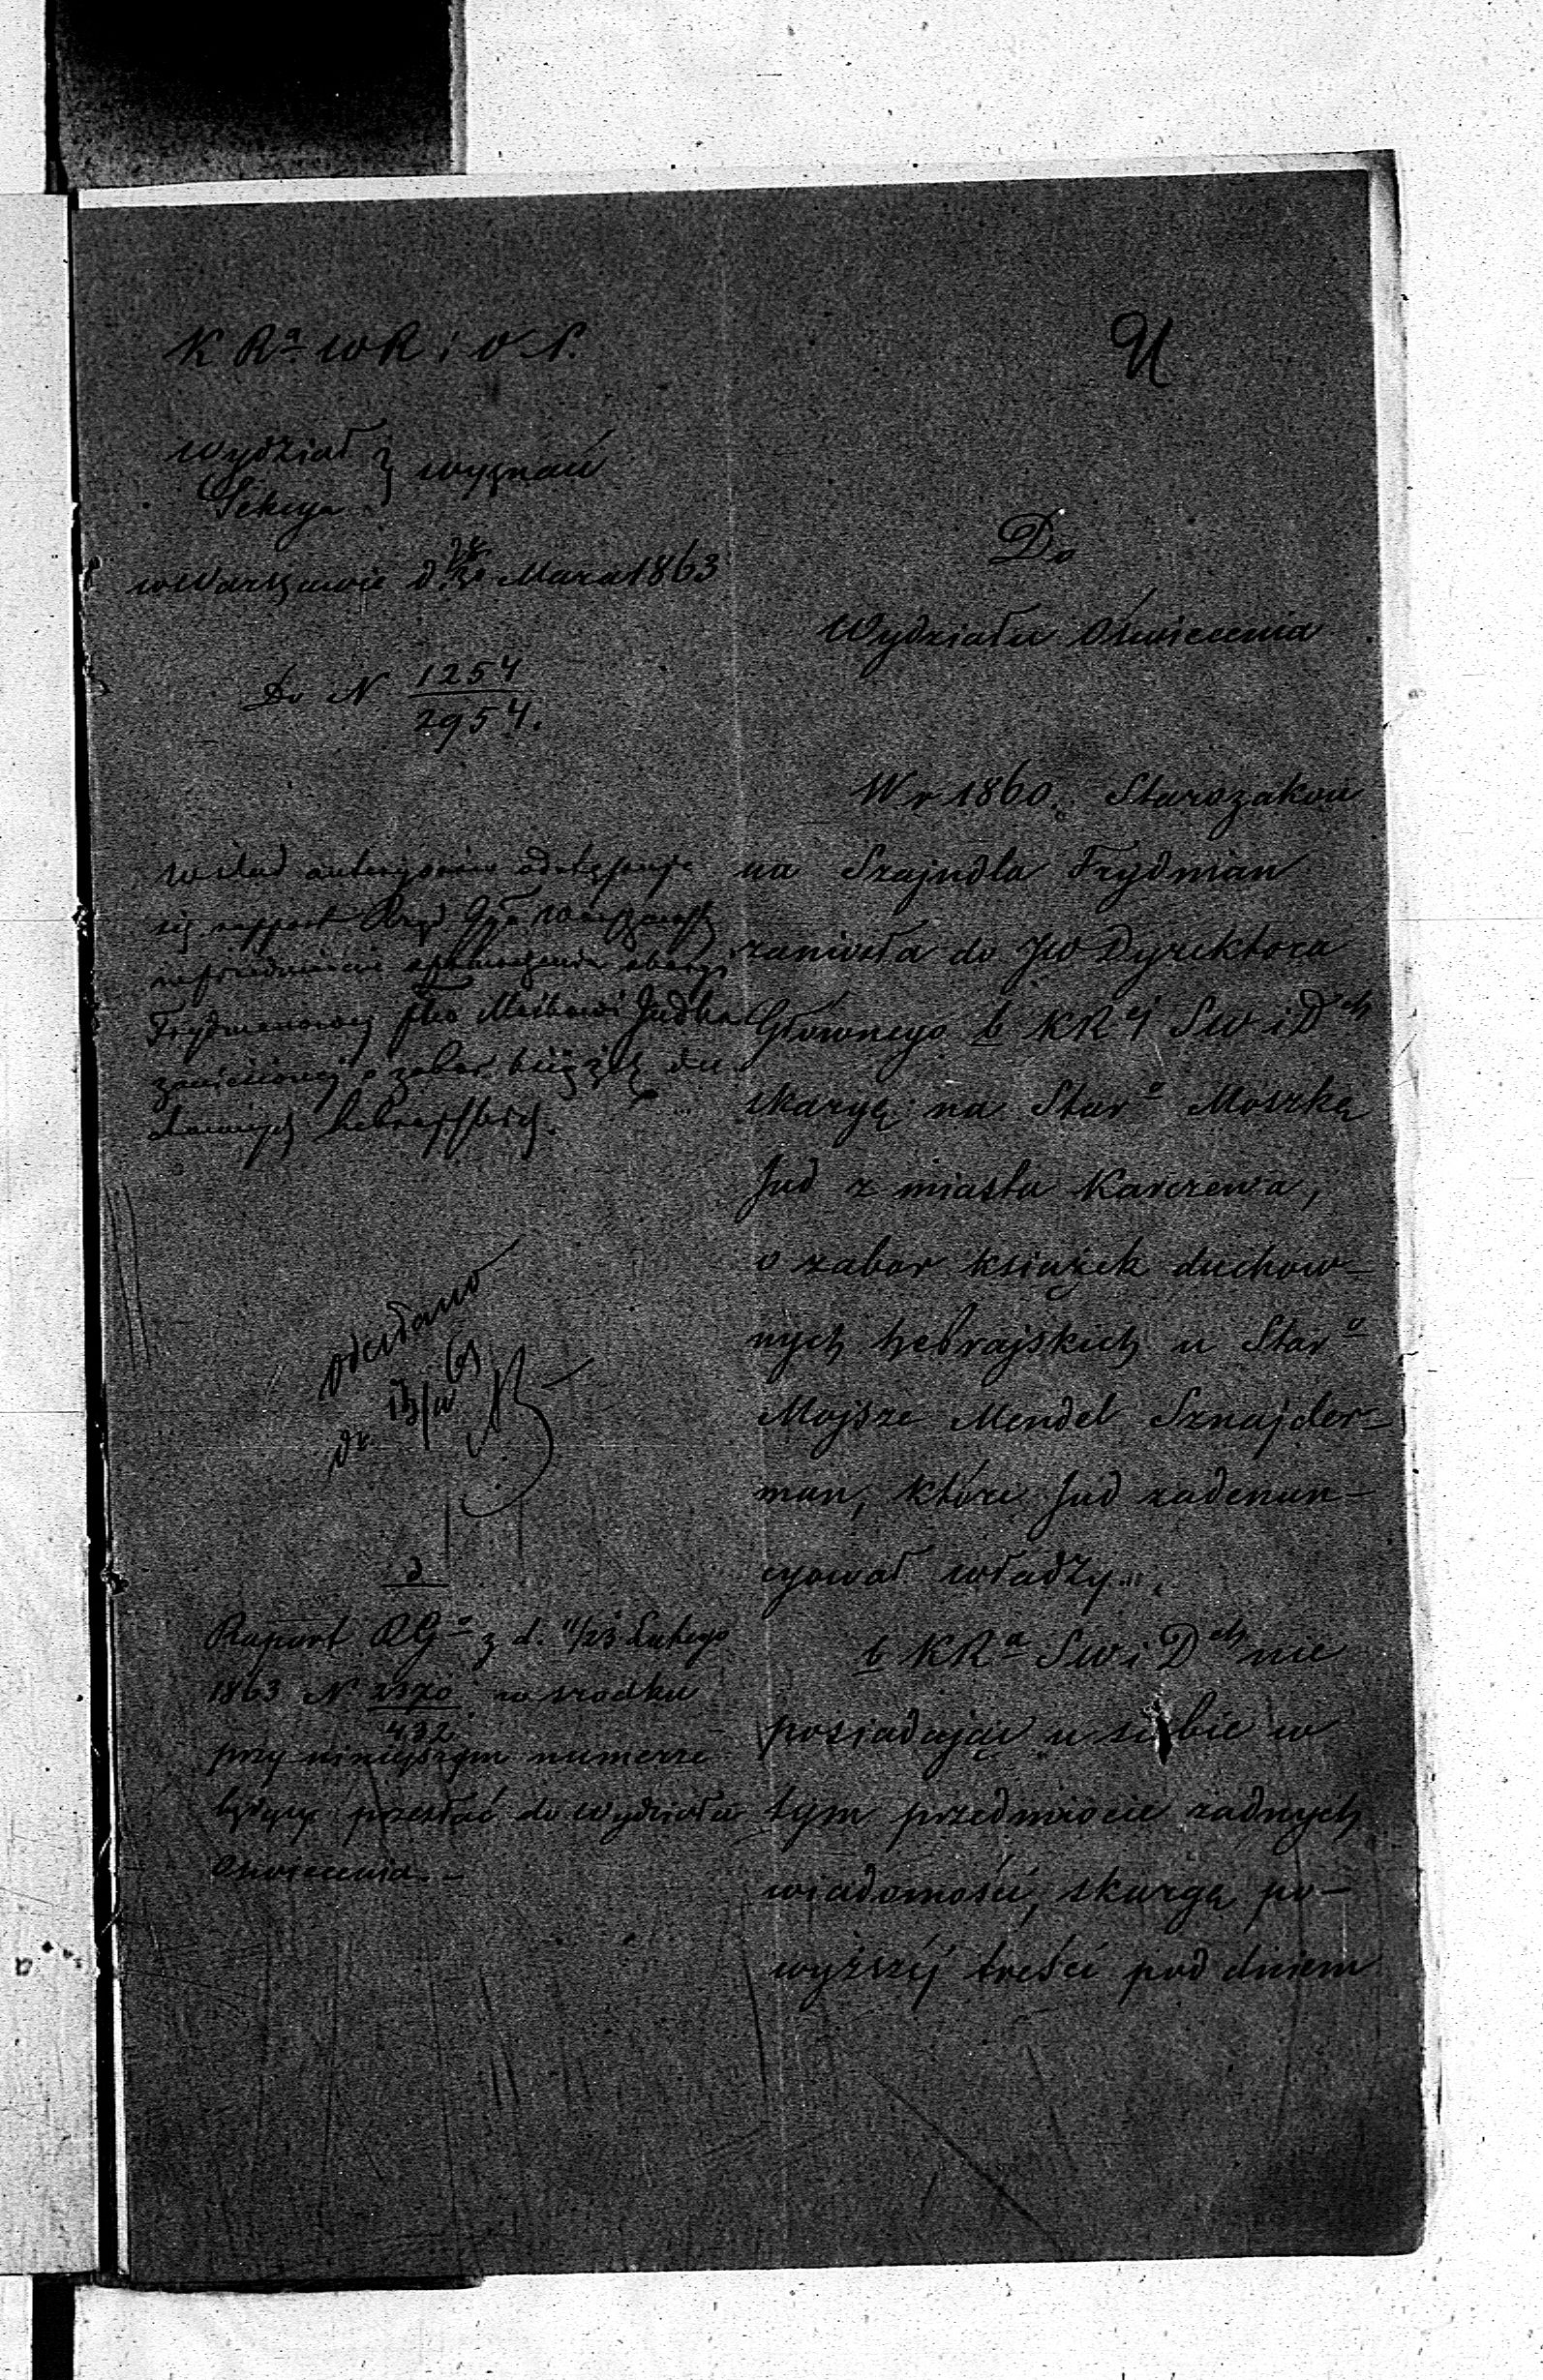 K Ra W R i O P.
Wydział } wyznań
Sekcya
w Warszawie d. Marca 1863
Do N 1254
2954.
odstępuje
się rapport Rząd Gub Warszawsk
w przedmiocie skargi
Frydmanowej Judka
zaniesionej o zabor książek du
chownych hebrajskich.
odesłano
d
Raport RGo z d. 11/23 Lutego
1863 N 2370 w srodku
432
przy niniejszym numerze
będący przesłać do Wydziału
Oswiecenia. –
U
Do
Wydziału Oświecenia
W r 1860. Starozakon
na Szajndla Frydman
zaniosła do JW Dyrektora
Głównego b KRyi SW i Dch
skargę na Staro Moszka
Jud z miasta Karczewa,
o zabor ksiażek duchow–
nych hebrajskich u Staro
Mojsze Mendel Sznajder–
man, które Jud zadenun–
cyował władzy
b KRa SW i Dch nie
posiadając u siebie w
tym przedmiocie zadnych
wiadomości, skargę po–
wyższéj treści pod dniem